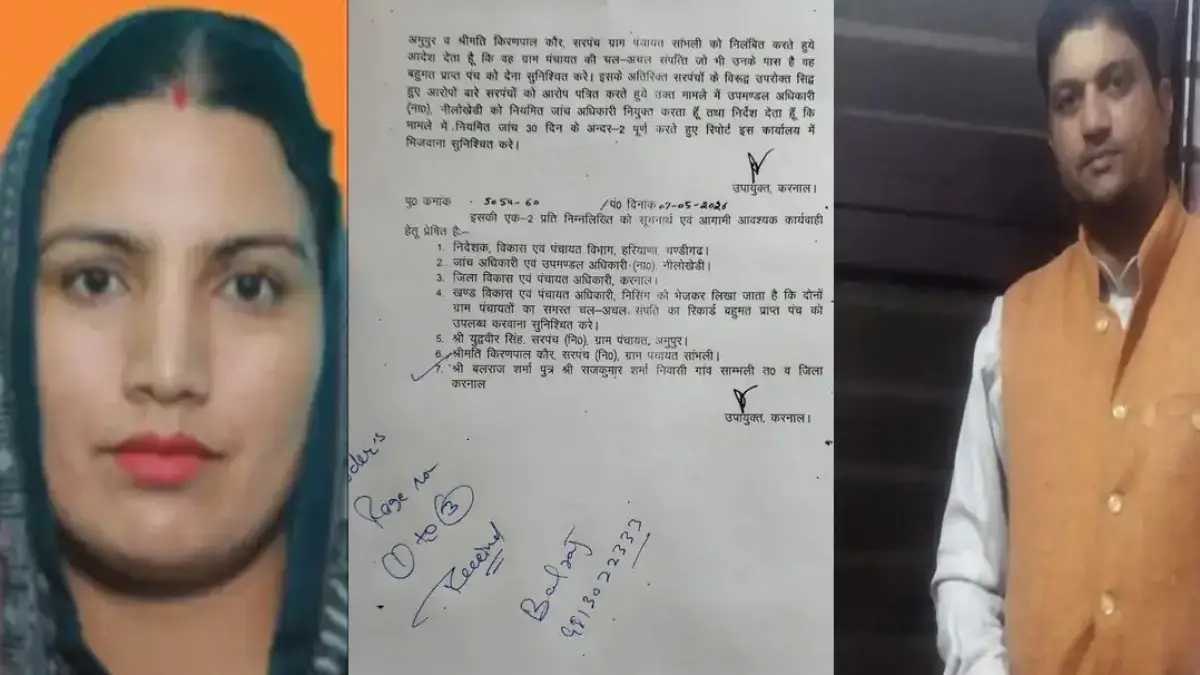 अमुपुर व श्रीमति किरणपाल कौर, सरपंच ग्राम पंचायत सांभली को निलंबित करते हुये
आदेश देता हूँ कि वह ग्राम पंचायत की चल–अचल संपत्ति जो भी उनके पास है वह
बहुमत प्राप्त पंच को देना सुनिश्चित करे। इसके अतिरिक्त सरपंचों के विरूद्व उपरोक्त सिद्व
हुए आरोपों बारे सरपंचों को आरोप पत्रित करते हुये उक्त मामले में उपमण्डल अधिकारी
(ना0), नीलोखेडी को नियमित जांच अधिकारी नियुक्त करता हूँ तथा निर्देश देता हूँ कि
मामले में नियमित जांच 30 दिन के अन्दर–2 पूर्ण करते हुए रिपोर्ट इस कार्यालय में
भिजवाना सुनिश्चित करे।
उपायुक्त, करनाल।
पृ0 कमांक 5054-60 /पं0 दिनांक 07-05-2026
इसकी एक–2 प्रति निम्नलिखित को सूचनार्थ एवं आगामी आवश्यक कार्यवाही
हेतू प्रेषित है:–
1. निदेशक, विकास एवं पंचायत विभाग, हरियाणा, चण्डीगढ।
2. जांच अधिकारी एवं उपमण्डल अधिकारी (ना0), नीलोखेडी।
3. जिला विकास एवं पंचायत अधिकारी, करनाल।
4. खण्ड विकास एवं पंचायत अधिकारी, निसिंग को भेजकर लिखा जाता है कि दोनों
ग्राम पंचायतों का समस्त चल–अचल संपति का रिकार्ड बहुमत प्राप्त पंच को
उपलब्ध करवाना सुनिश्चित करे।
5. श्री युद्ववीर सिंह, सरपंच (नि0), ग्राम पंचायत, अमुपुर।
6. श्रीमति किरणपाल कौर, सरपंच (नि0), ग्राम पंचायत सांभली।
7. श्री बलराज शर्मा पुत्र श्री राजकुमार शर्मा निवासी गांव साम्भली त0 व जिला
करनाल
उपायुक्त, करनाल।
Page no
① to ③
Received
Balraj
9813022333